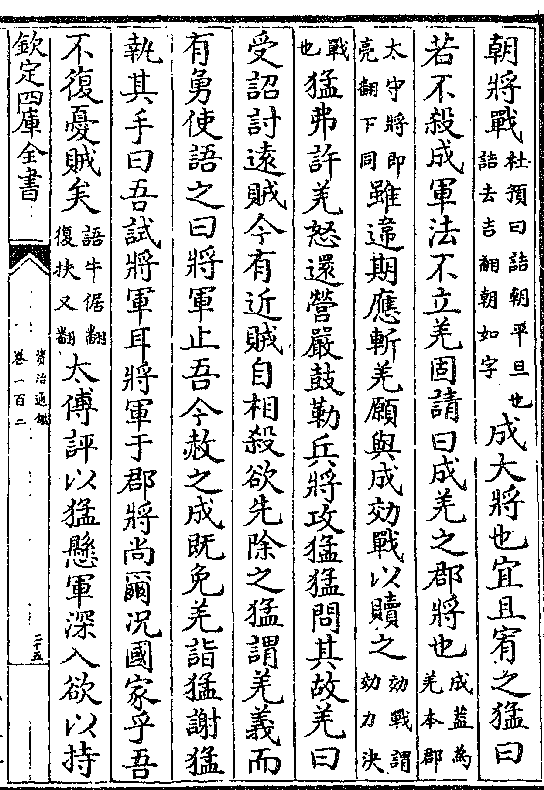 朝將戰杜預曰詰朝平旦也詰去吉翻朝如字成大將也宜且宥之猛曰
若不殺成軍法不立羌固請曰成羌之郡將也成蓋為羌本郡
太守將即亮翻下同雖違期應斬羌願與成効戰以贖之効戰謂効力決
戰也猛弗許羌怒還營嚴鼓勒兵將攻猛猛問其故羌曰
受詔討遠賊今有近賊自相殺欲先除之猛謂羌義而
有勇使語之曰將軍止吾今赦之成既免羌詣猛謝猛
執其手曰吾試將軍耳將軍于郡將尚爾况國家乎吾
不復憂賊矣語牛倨翻復扶又翻太傅評以猛懸軍深入欲以持
欽定四庫全書
資治通鑑
卷一百二
二十五